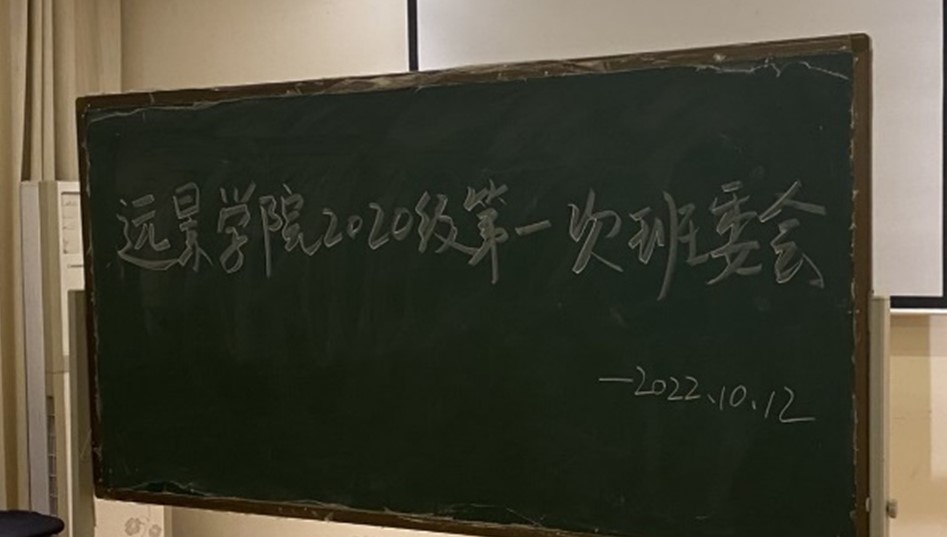 远景学院2020级第一次班委会
—2022.10.12